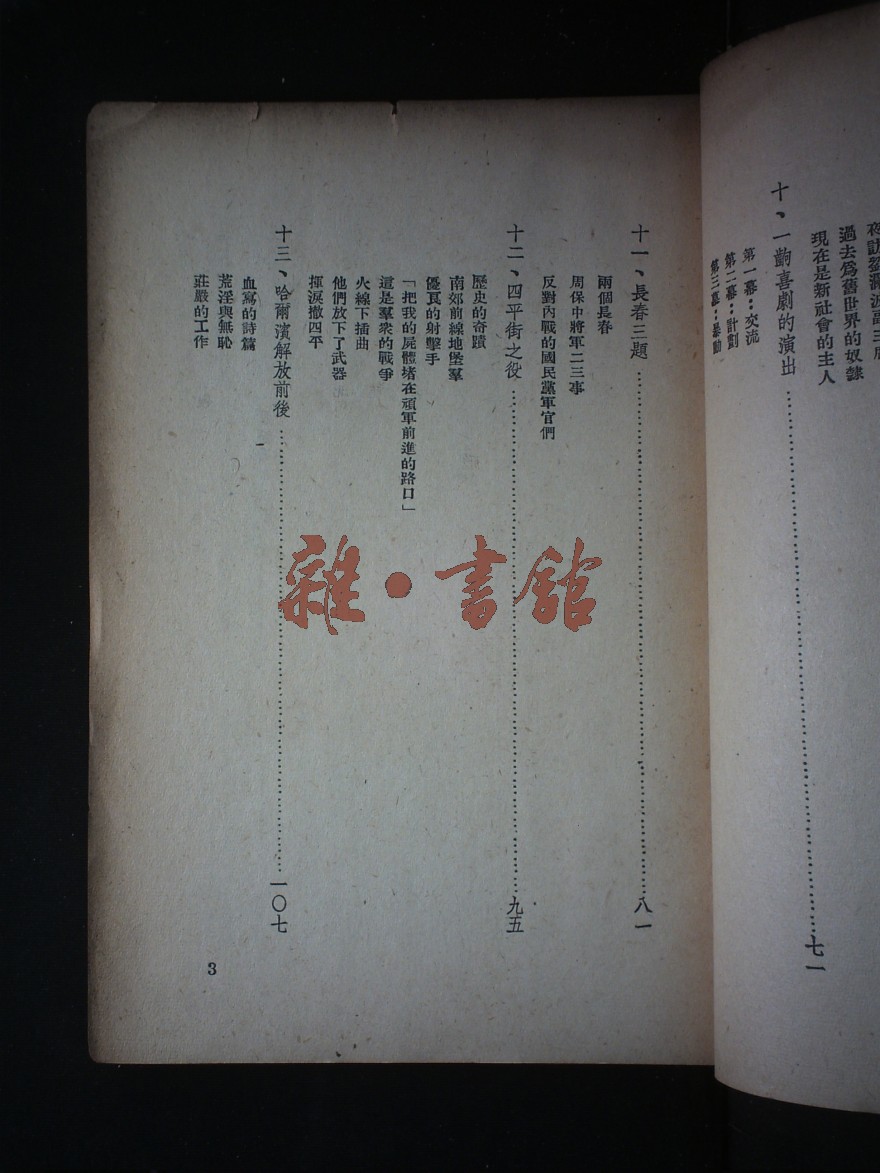 過去爲舊世界的奴隸
現在是新社會的主人
十、一齣喜劇的演出……七一
第一幕：交流
第二幕：計劃
第三幕：暴動
十一、長春三題……八一
兩個長春
周保中將軍二三事
反對內戰的國民黨軍官們
十二、四平街之役……九五
歷史的奇蹟
南郊前線地堡羣
優良的射擊手
「把我的屍體堵在頑軍前進的路口」
這是羣衆的戰爭
火線下插曲
他們放下了武器
揮淚撤四平
十三、哈爾濱解放前後……一〇七
血寫的詩篇
荒淫與無恥
莊嚴的工作
3
雜·書館